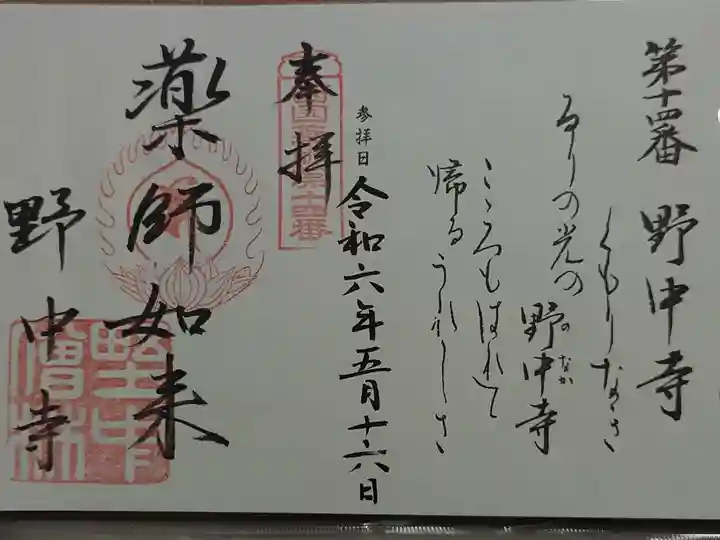 第十四番 野中寺
くもりなき
るりの光の野中寺
のなか
こゝろもはれて
帰るうれしさ
参拝日
令和六年五月十六日
奉拝
薬師如来
野中寺
野中
僧林